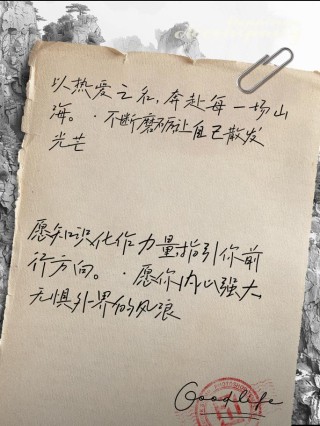 以热爱之名，奔赴每一场山
海。·不断磨砺让自己散发
光芒
愿知识化作力量指引你前
行方向。·愿你内心强大
无惧外界的风浪
Good life